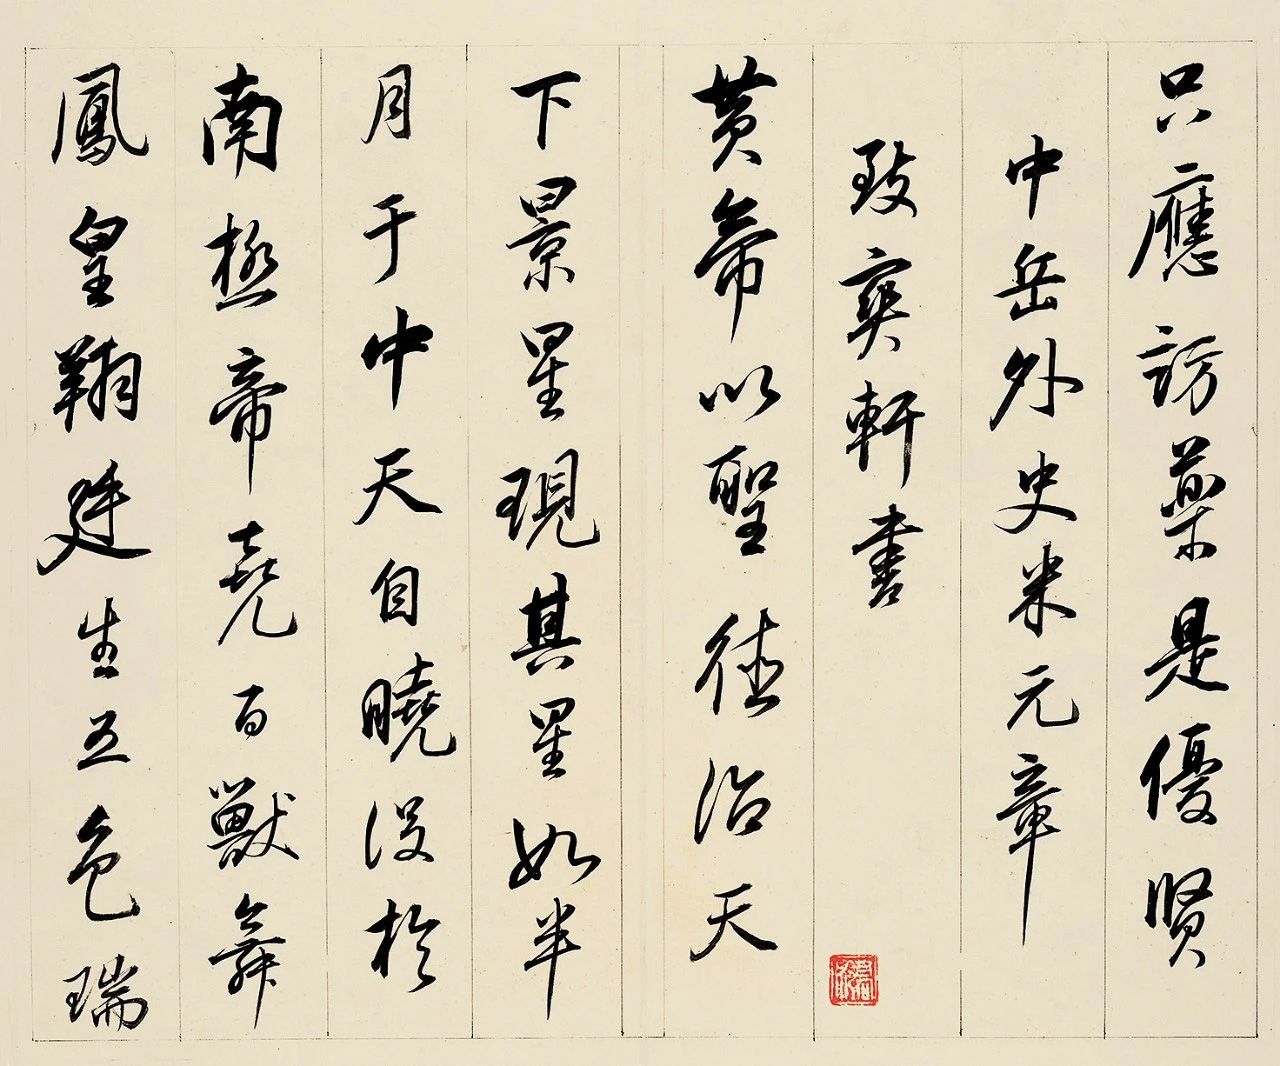 只應訪藥是優賢
中岳外史米元章
致爽軒書
黄帝以聖德治天
下景星現其星如半
月于中天自曉沒於
南極帝堯百獸舞
鳳皇翔廷生五色瑞